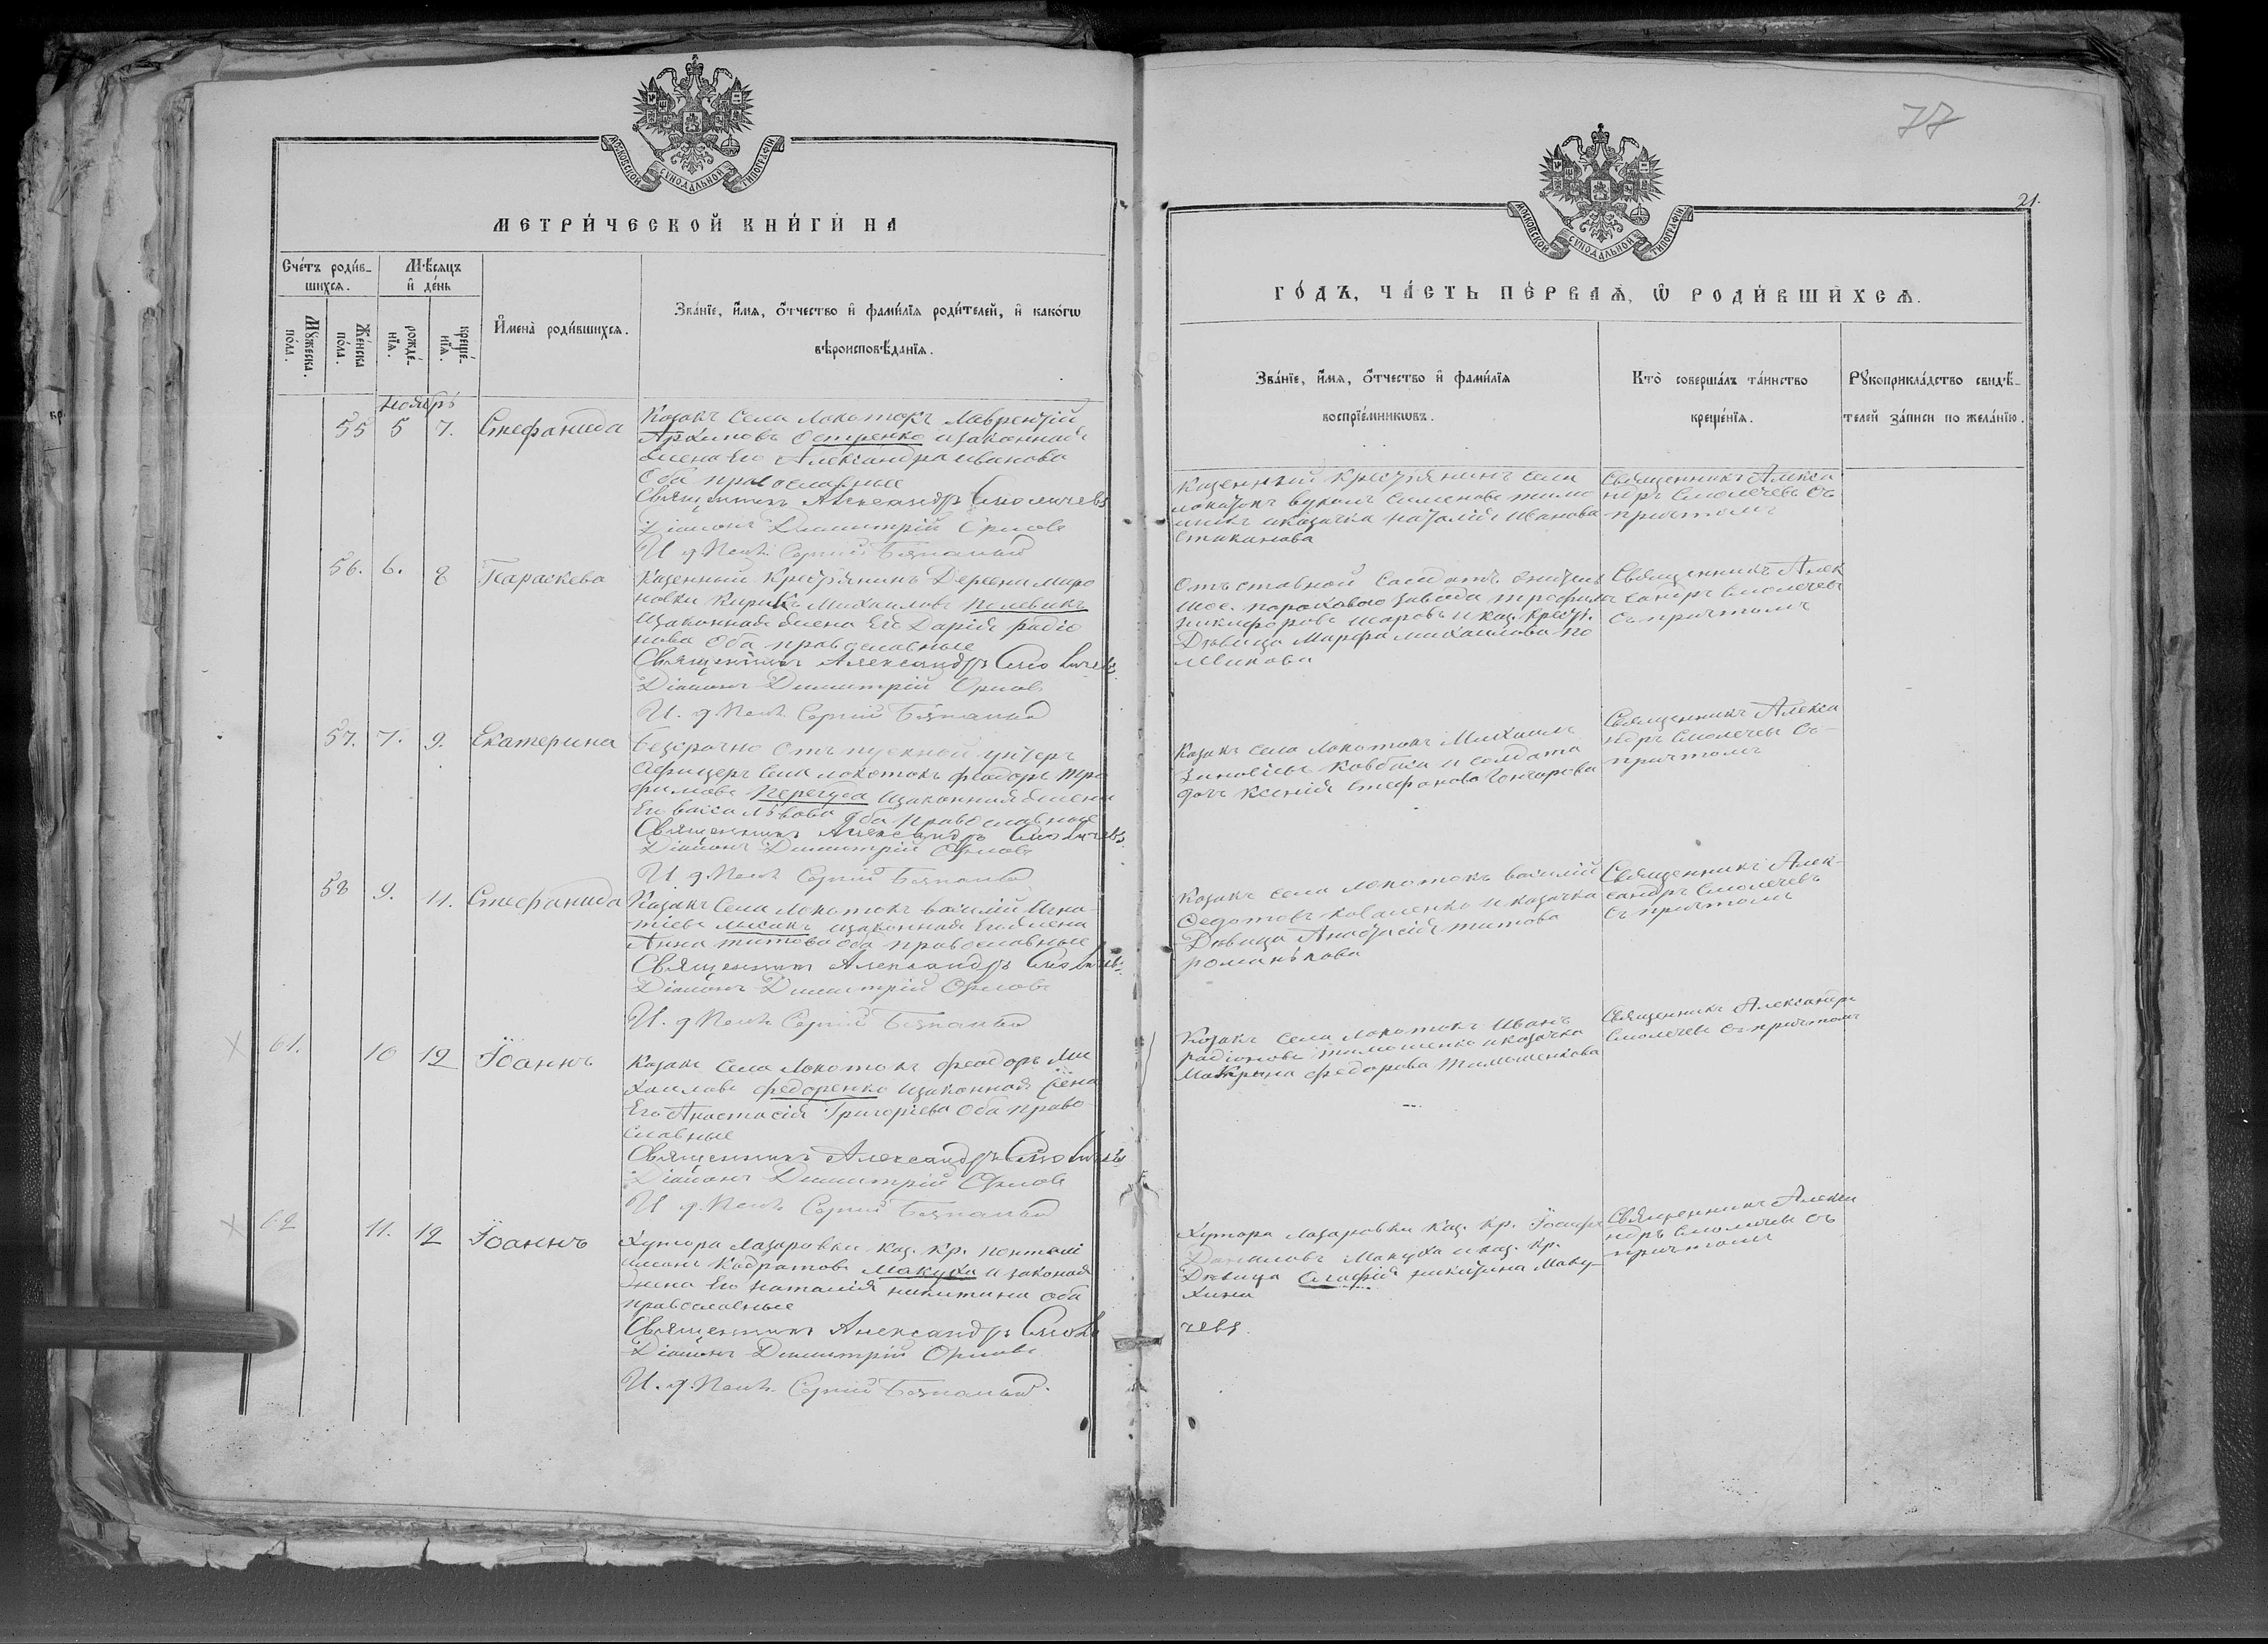 МОСКОВСКОЙ СѴНОДАЛЬНОЙ ТИПОГРАФІИ
МЕТРИ́ЧЕСКОЙ КНИ́ГИ НА
Сче́тъ роди́в-
шихся.
Мѣ́сяцъ
и҆ де́нь
Мꙋ́жеска
по́ла.
Же́нска
по́ла.
рожде́-
нїя.
креще́-
нїя.
И҆мена̀ роди́вшихся.
Зва́нїе, и҆́мя, ѻ҆́тчество и҆ фами́лїя роди́телей, и҆ како́гѡ
вѣроисповѣ́данїя.
ноябрь
55 5 7. Стефанида
Козакъ Села Локотокъ Лаврентій
Архиповъ Остренко изаконная
жена его Александра иванова
Оба православные
Священникъ Александръ Смоличевъ
Діаконъ Димитрій Орловъ
И. д. Псал. Сергій
56. 6. 8 Параскева
Казенный Крестьянинъ Деревни Миро
новки Кирикъ Михаиловъ Полевикъ
изаконная жена Его Дарія Радіо
нова Оба православные
Священникъ Александръ Смоличевъ
Діаконъ Димитрій Орловъ
И. д. Псал. Сергій
57. 7. 9. Екатерина
Безсрочно Отъпускной унтеръ
Афицеръ Села Локотокъ Феодоръ Тро
фимовъ Перегуда изаконная жена
Его Васса Львова Оба православные
Священникъ Александръ Смоличевъ
Діаконъ Димитрій Орловъ
И. д. Псал. Сергій
58 9. 11. Стефанида
Козакъ Села Локотокъ Василій Игна
тіевъ Лысакъ изаконная Его жена
Анна Титова Оба православные
Священникъ Александръ Смоличевъ
Діаконъ Димитрій Орловъ
И. д. Псал. Сергій
61. 10 12 Іоаннъ
Козакъ Села Локотокъ Феодоръ Ми
хаиловъ Федоренко изаконная жена
Его Анастасія Григоріева Оба право
славные
Священникъ Александръ Смоличевъ
Діаконъ Димитрій Орловъ
И. д. Псал. Сергій
62 11. 12 Іоаннъ
Хутора Лазаровки Каз. Кр. Понтелі
имонъ Кодратовъ Макуха изаконая
жена Его Наталія никитина Оба
православные
Священникъ Александръ Смоли
Діаконъ Димитрій Орловъ
И. д. Псал. Сергій
77
21.
МОСКОВСКОЙ СѴНОДАЛЬНОЙ ТИПОГРАФІИ
ГО́ДЪ, ЧА́СТЬ ПЕ́РВАЯ, Ѡ҆ РОДИ́ВШИХСЯ.
Зва́нїе, и҆́мя, ѻ҆́тчество и҆ фами́лїя
воспрїе́мникѡвъ.
Кто̀ соверша́лъ та́инство
креще́нїя.
Рꙋкоприкла́дство свидѣ́-
телей за́писи по жела́нїю.
Казенный Крестьянинъ Села
Локотокъ Вуколъ Симеоновъ
и козачка Наталія Иванова
Священникъ Алекса
ндръ Смоличевъ Съ
причтомъ
Отъставной Солдатъ
Шос. порохового завода Трофимъ
Никифоровъ Шаровъ и каз. крест.
Дѣвица Марфа Михаилова По
левикова
Священникъ Алек
сандръ Смоличевъ
Съ причтомъ
Козакъ Села Локотокъ Михаилъ
Зиновіевъ Ковбаса и солдата
доч. Ксенія Стефанова Гончарова
Священникъ Алекса
ндръ Смоличевъ Съ
причтомъ
Козакъ Села Локотокъ Василій
Федотовъ Коваленко и козачка
Дѣвица Анастасія Титова
романькова
Священникъ Алек-
сандръ Смоличевъ
Съ причтомъ
Козакъ Села Локотокъ Иванъ
Радіоновъ Тимошенко и козачка
Макрина Федорова Тимошенкова
Священникъ Александръ
Смоличевъ Съ причтомъ
Хутора Лазаровки Каз. Кр. Іосифъ
Даниловъ Макуха и каз. Кр.
Дѣвица Агафія Никитина Маку-
хина
Священникъ Алекса
ндръ Смоличевъ Съ
причтомъ
чевъ.